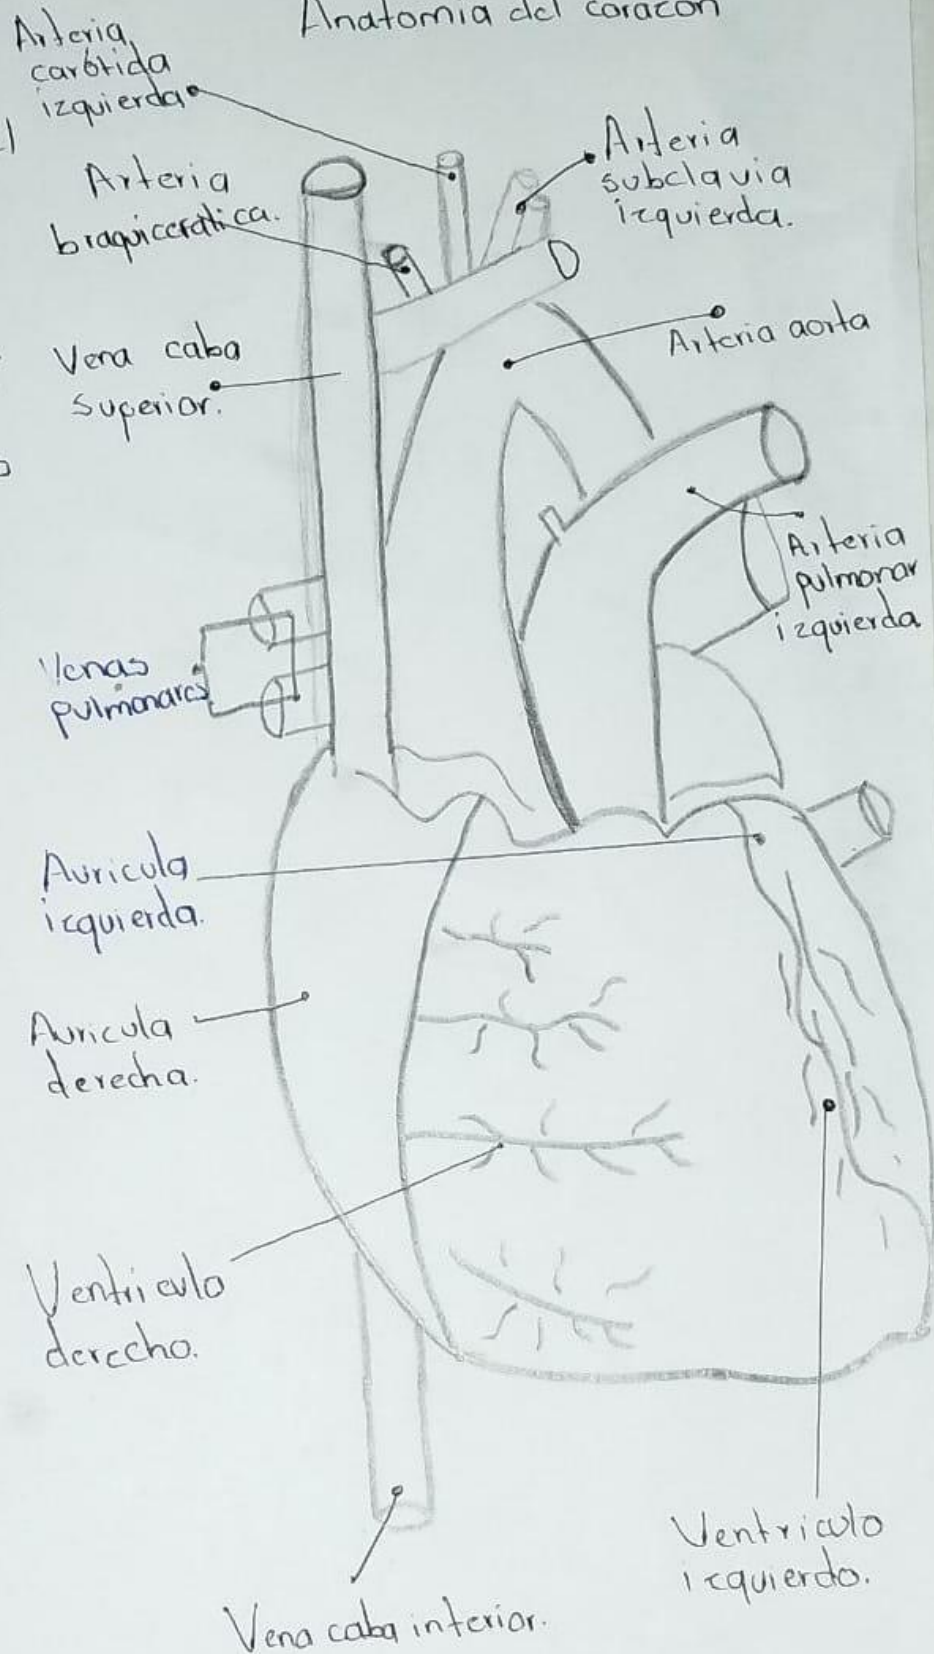 Anatomia del corazón
Arteria
carótida
izquierda
Arteria
braquicefalica.
Arteria
subclavia
izquierda.
Vena caba
superior.
Arteria aorta
Arteria
pulmonar
izquierda
Venas
pulmonares
Auricula
izquierda.
Auricula
derecha.
Ventriculo
derecho.
Ventriculo
izquierdo.
Vena caba interior.